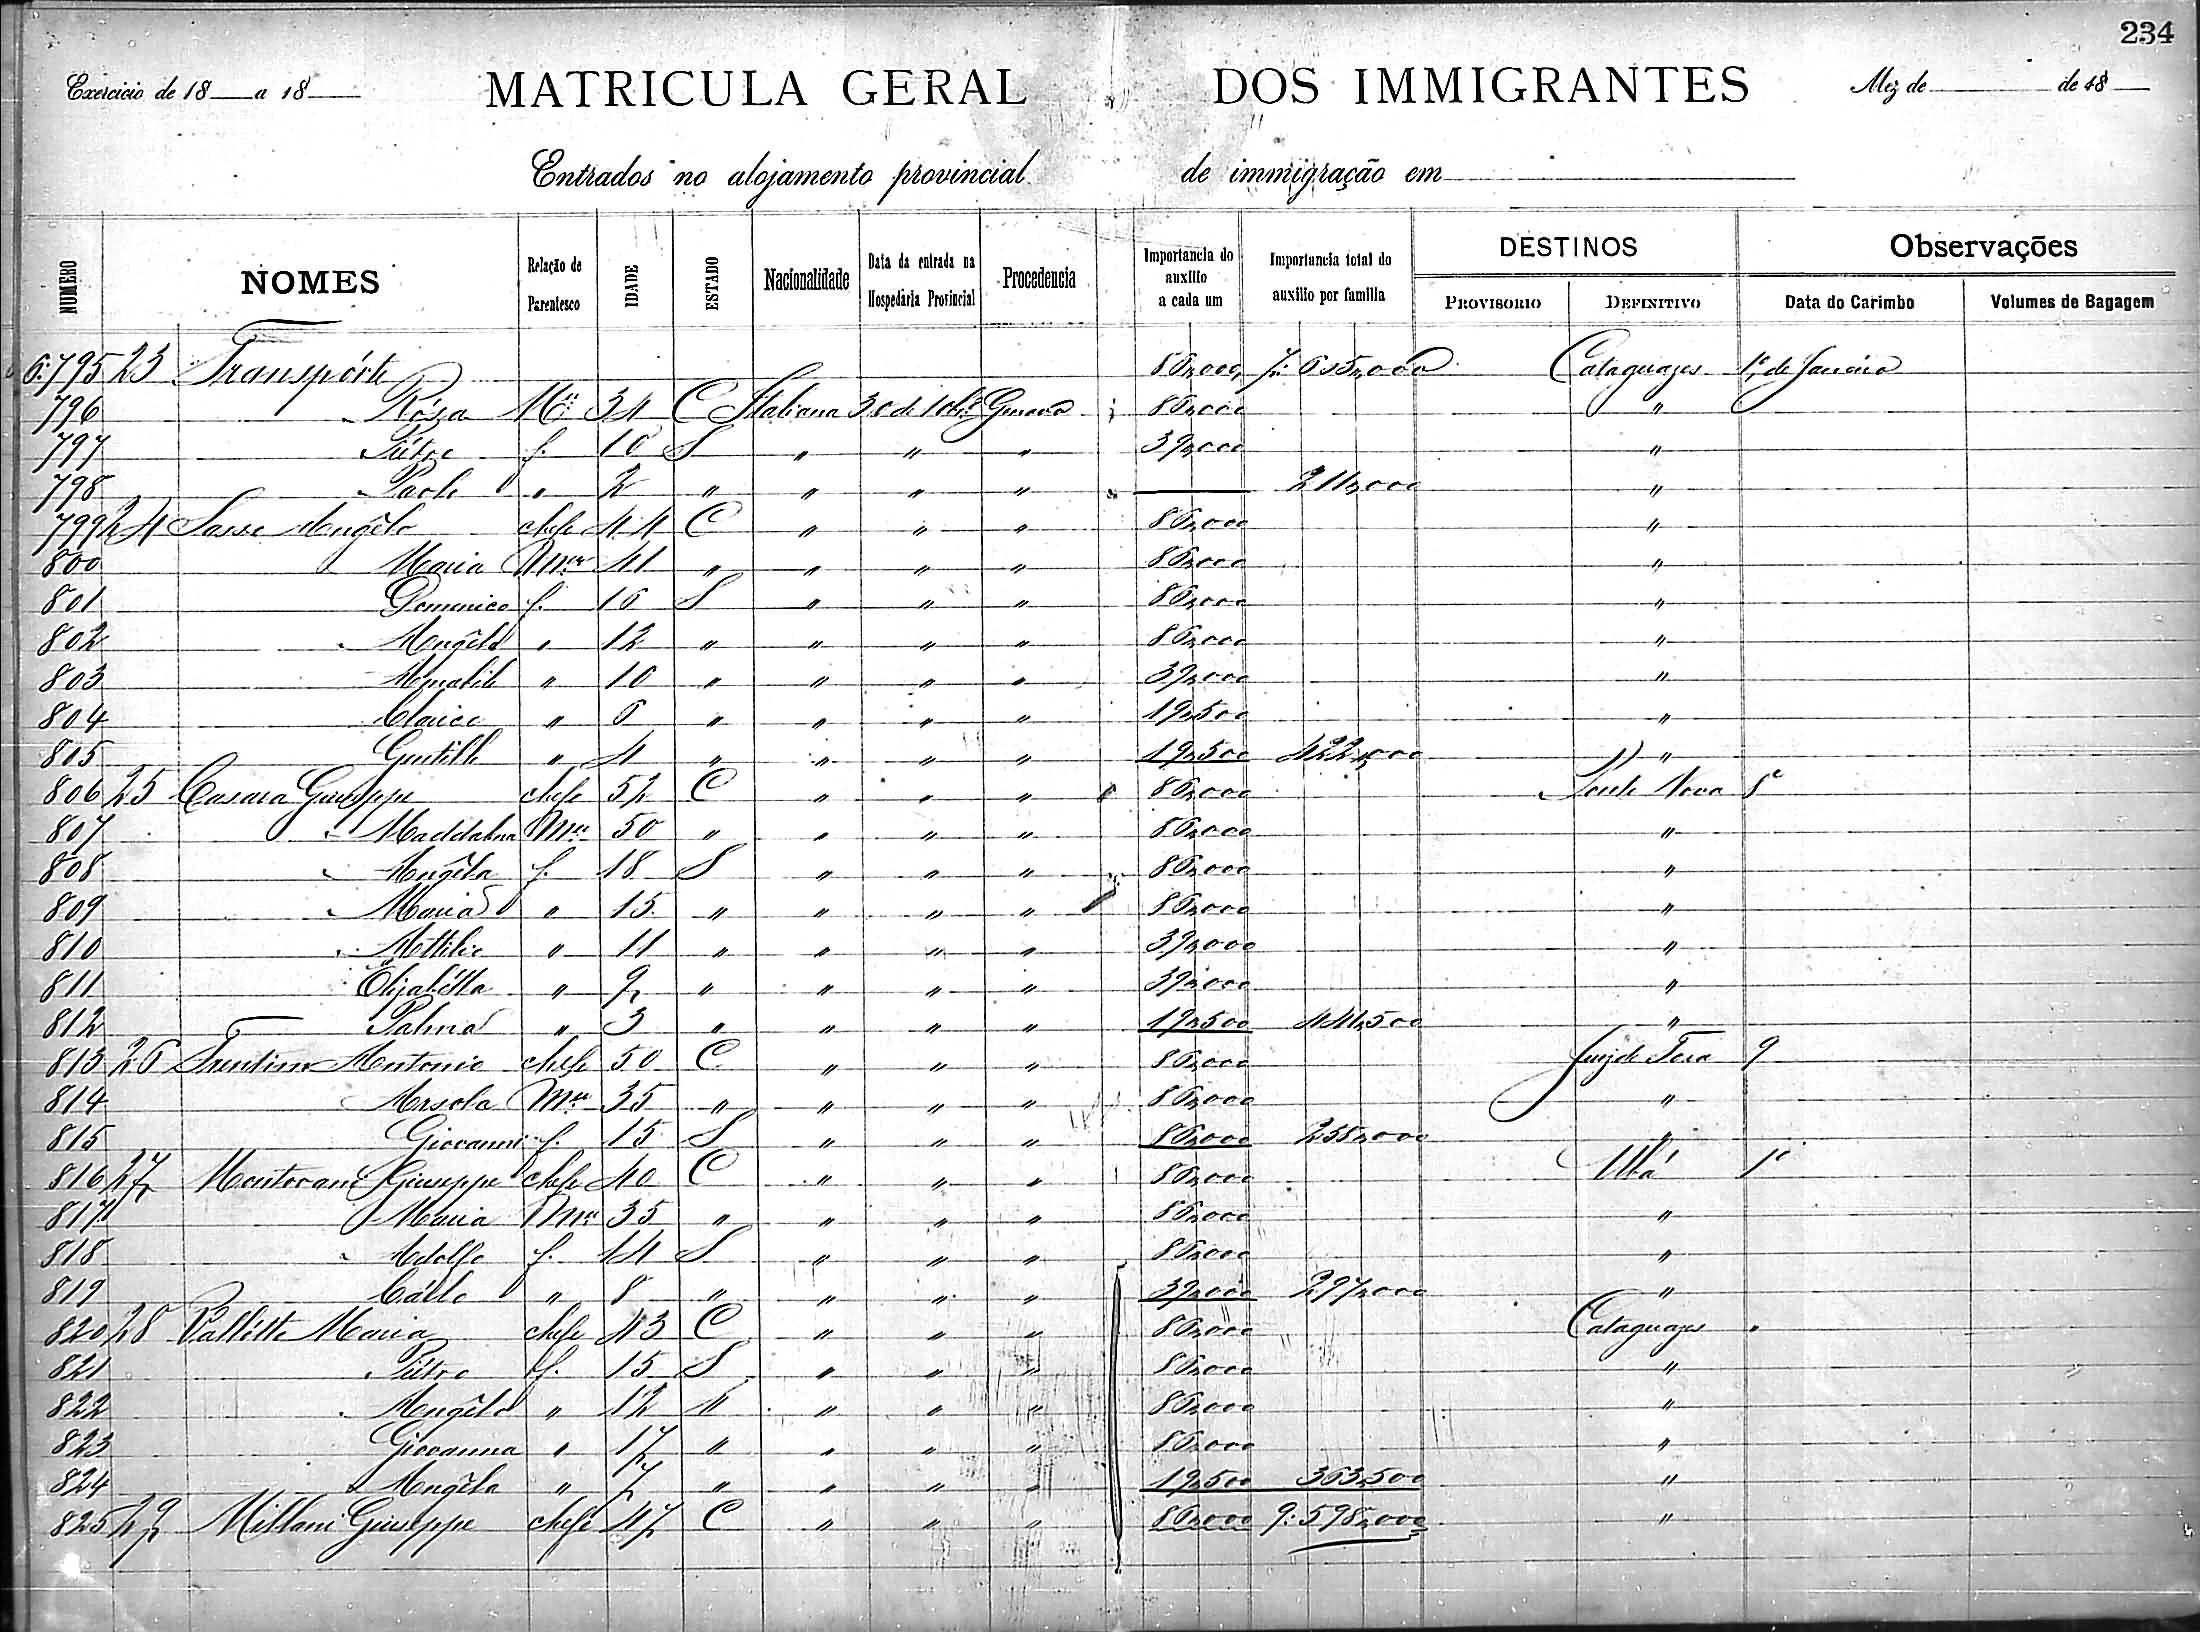 234
Exercicio de 18 a 18 MATRICULA GERAL DOS IMMIGRANTES Mez de de 18
Entrados no alojamento provincial de immigração em
NUMERO NOMES Relação de Parentesco IDADE ESTADO Nacionalidade Data da entrada na Hospedaria Provincial Procedencia Importancia do auxilio a cada um Importancia total do auxilio por familia DESTINOS PROVISORIO DEFINITIVO Observações Data do Carimbo Volumes de Bagagem
6.795 23 Transpórte 86,000 7:615,000 Cataguazes 1º de Janeiro
796 Rósa Mer 34 C Italiana 30 de Genova 86,000 "
797 Piétro f. 10 S " " " 39,000 "
798 Paolo " 2 " " " " — 211,000 "
799 24 Sasso Angêlo chefe 44 C " " " 86,000 "
800 Maria Mer 41 " " " " 86,000 "
801 Domenico f. 16 S " " " 86,000 "
802 Angêlo " 12 " " " " 86,000 "
803 " 10 " " " " 39,000 "
804 Clarice " 6 " " " " 19,500 "
805 Gentille " 4 " " " " 19,500 422,000 "
806 25 Casara Giuseppe chefe 52 C " " " 86,000 Ponte Nova 8º
807 Maddalena Mer 50 " " " " 86,000 "
808 Angêla f. 18 S " " " 86,000 "
809 Maria " 15 " " " " 86,000 "
810 " 11 " " " " 39,000 "
811 Elizabétta " 9 " " " " 39,000 "
812 Palma " 3 " " " " 19,500 441,500 "
813 26 Trentim Antonio chefe 50 C " " " 86,000 Juiz de Fora 9
814 Orsola Mer 35 " " " " 86,000 "
815 Giovanni f. 15 S " " " 86,000 258,000 "
816 27 Mantovani Giuseppe chefe 40 C " " " 86,000 Ubá 1º
817 Maria Mer 35 " " " " 86,000 "
818 Adolfo f. 14 S " " " 86,000 "
819 Cárlo " 8 " " " " 39,000 297,000 "
820 28 Maria chefe 43 C " " " 86,000 Cataguazes "
821 Piétro f. 15 S " " " 86,000 "
822 Angêlo " 12 " " " " 86,000 "
823 Giovanna " 17 " " " " 86,000 "
824 Angêla " 7 " " " " 19,500 363,500 "
825 29 Millani Giuseppe chefe 47 C " " " 86,000 9:598,000 "